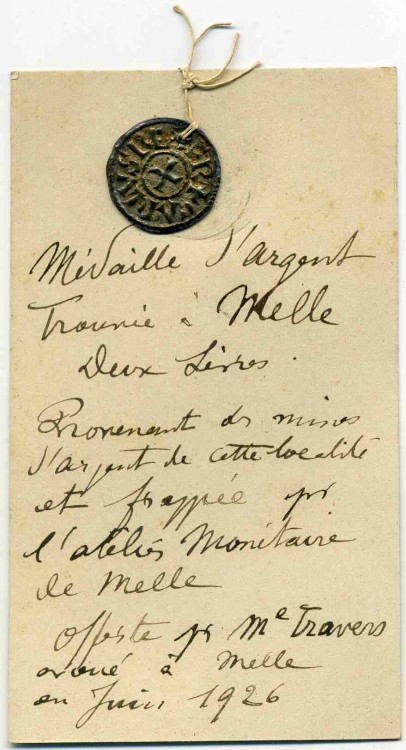 Médaille d'argent
Trouvée à Melle
Deux Sèvres.
Provenant des mines
d'argent de cette localité
et frappée pr
l'atelier Monétaire
de Melle
Offerte pr Me Travers
avoué à Melle
en Juin 1926